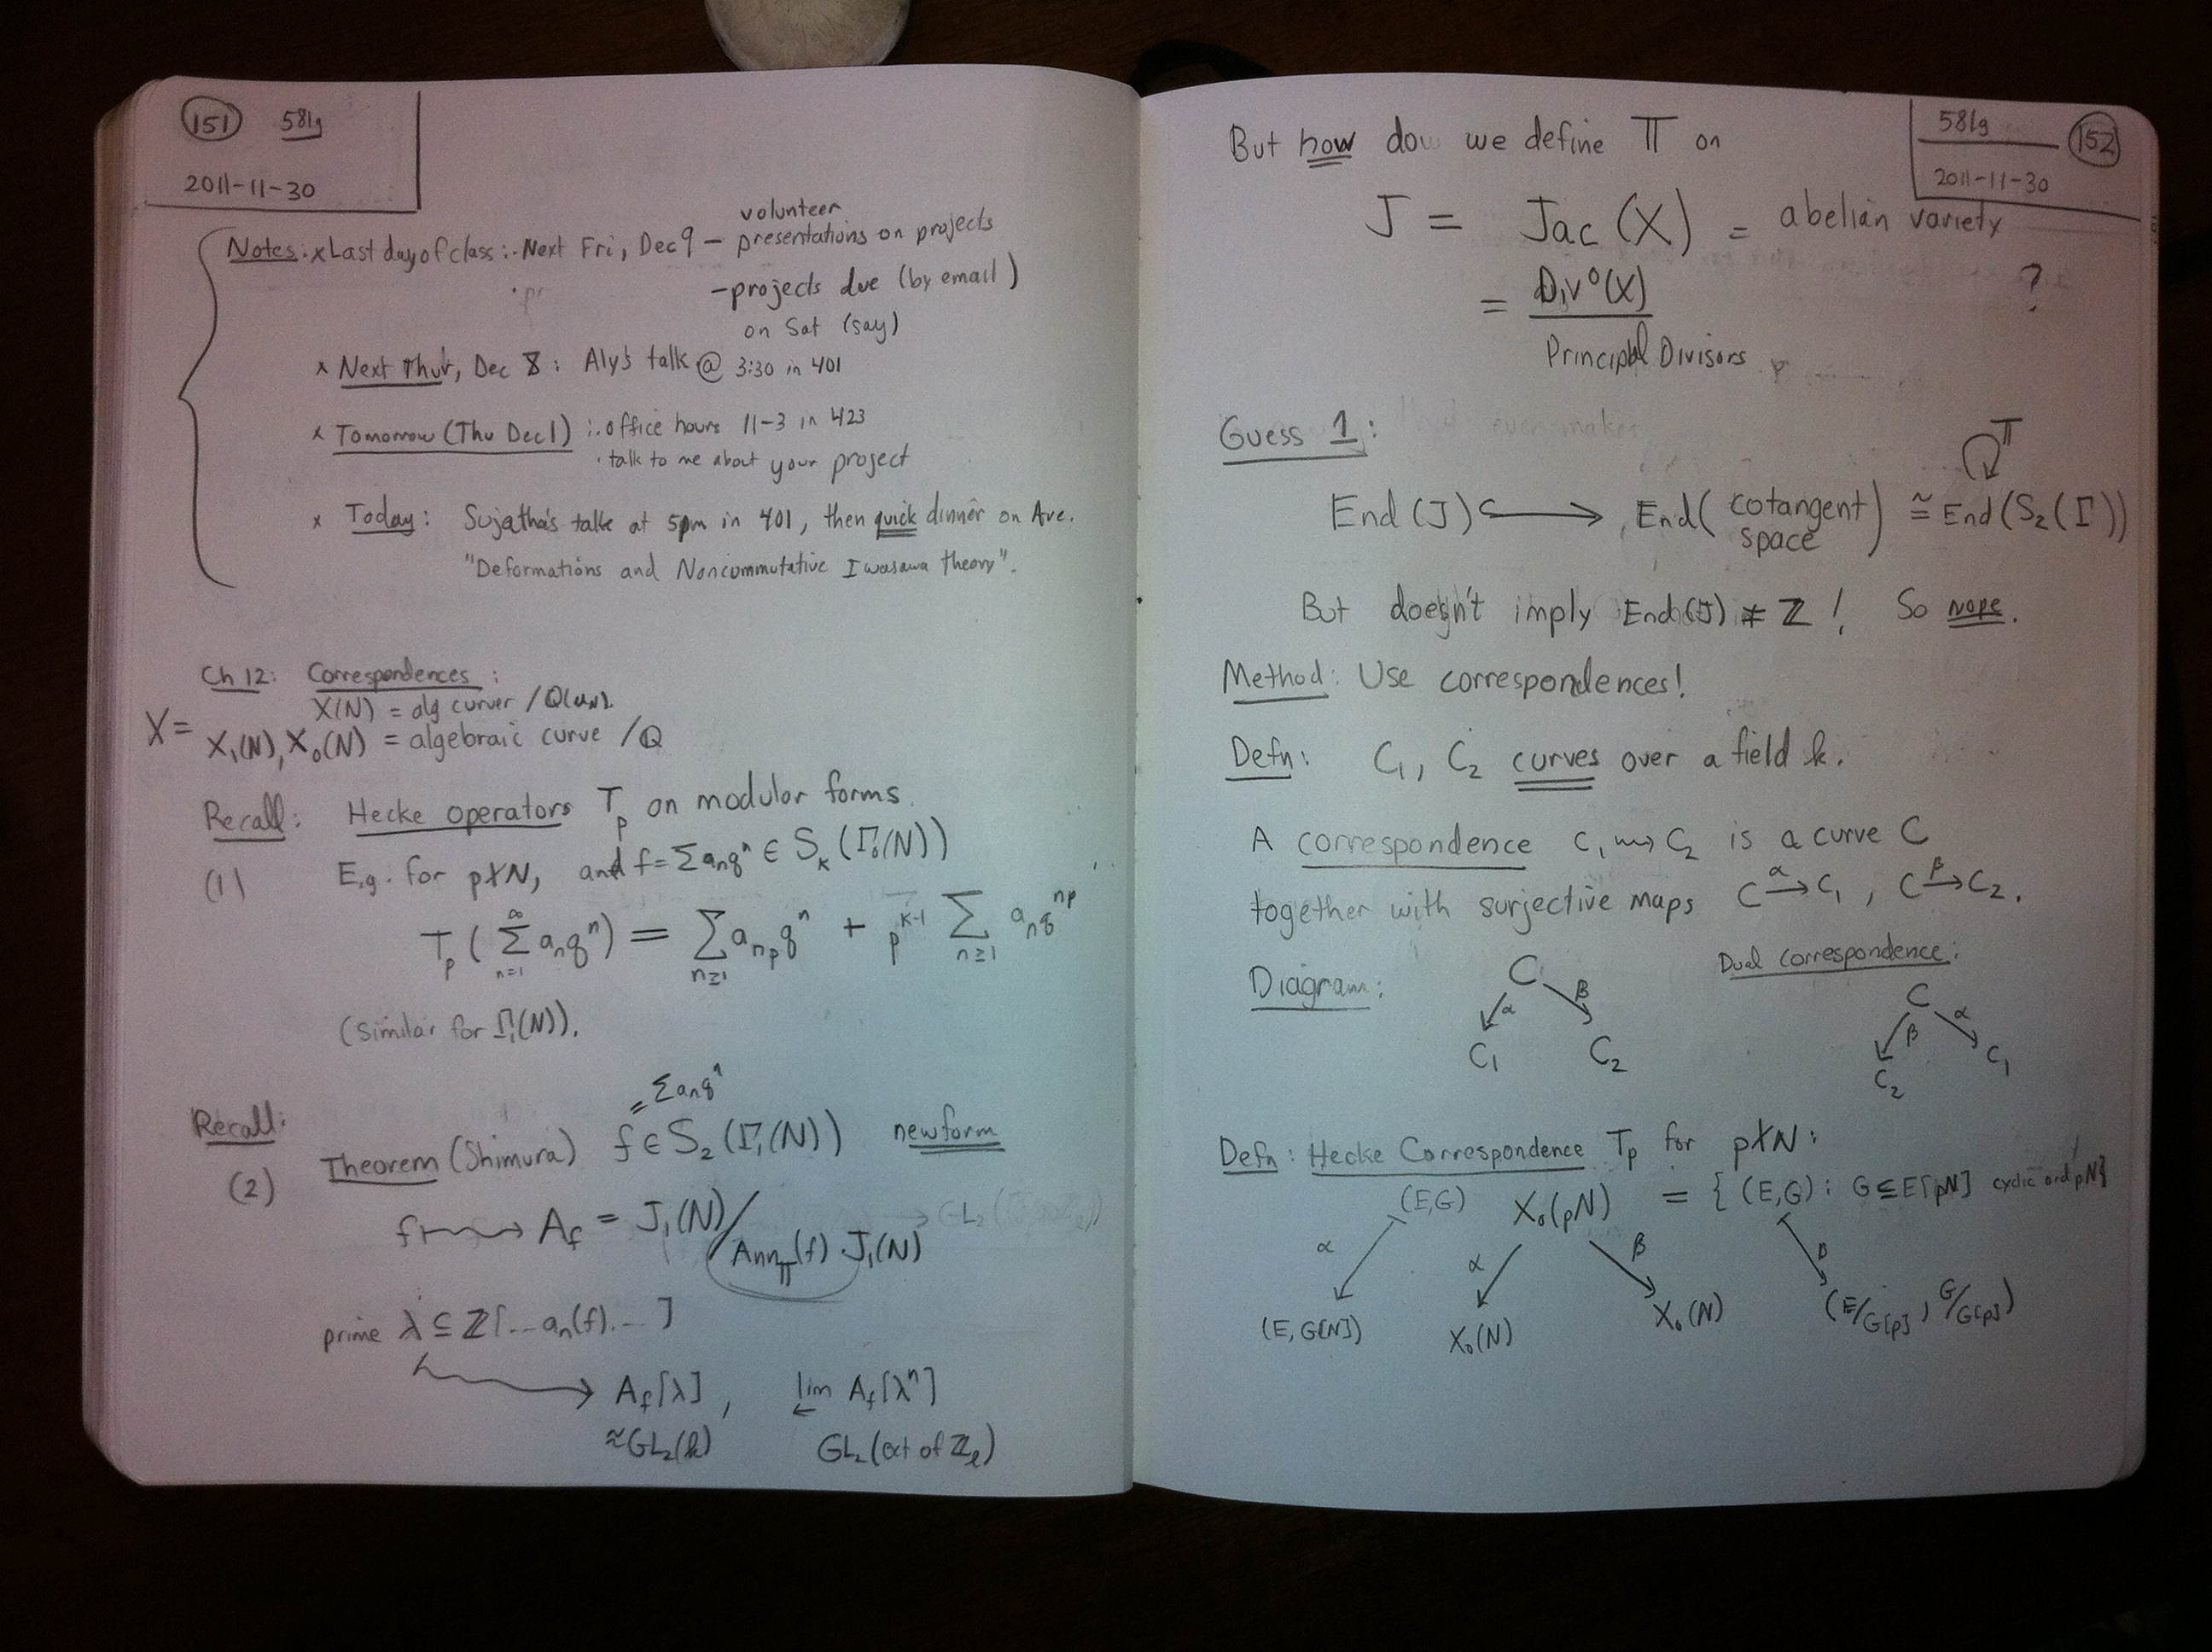 151 581g
2011-11-30
Notes: x Last day of class: · Next Fri, Dec 9 – volunteer presentations on projects
– projects due (by email)
on Sat (say)
x Next Thur, Dec 8: Aly's talk @ 3:30 in 401
x Tomorrow (Thu Dec 1): · office hours 11-3 in 423
· talk to me about your project
x Today: Sujatha's talk at 5pm in 401, then quick dinner on Ave.
"Deformations and Noncommutative Iwasawa theory".
Ch 12: Correspondences:
X(N) = alg curver / Q(μ_N).
X = X₁(N), X₀(N) = algebraic curve / ℚ
Recall: Hecke operators T_p on modular forms.
(1) E.g. for p∤N, and f = Σaₙqⁿ ∈ S_k(Γ₀(N))
T_p(Σ_{n=1}^∞ aₙqⁿ) = Σ_{n≥1} a_{np}qⁿ + p^{k-1} Σ_{n≥1} aₙq^{np}
(similar for Γ₁(N)).
= Σaₙqⁿ
Recall: (2) Theorem (Shimura) f ∈ S₂(Γ₁(N)) newform
f ⟿ A_f = J₁(N) / Ann_𝕋(f)·J₁(N)
prime λ ⊆ ℤ[... aₙ(f) ...]
⟿ A_f[λ], lim← A_f[λⁿ]
≈GL₂(k) GL₂(ext of ℤ_ℓ)
581g 152
2011-11-30
But how dow we define 𝕋 on
J = Jac(X) = abelian variety
= Div⁰(X) / Principal Divisors ?
Guess 1:
𝕋
End(J) ↪ End(cotangent space) ≅ End(S₂(Γ))
But doesn't imply End(J) ≠ ℤ! So nope.
Method: Use correspondences!
Defn: C₁, C₂ curves over a field k.
A correspondence C₁ ⟿ C₂ is a curve C
together with surjective maps C →^α C₁, C →^β C₂.
Dual correspondence:
Diagram: C C
α β β α
C₁ C₂ C₂ C₁
Defn: Hecke Correspondence T_p for p∤N:
(E,G) X₀(pN) = {(E,G) : G ⊆ E[pN] cyclic ord pN}
α α β β
(E, G[N]) X₀(N) X₀(N) (E/G[p], G/G[p])